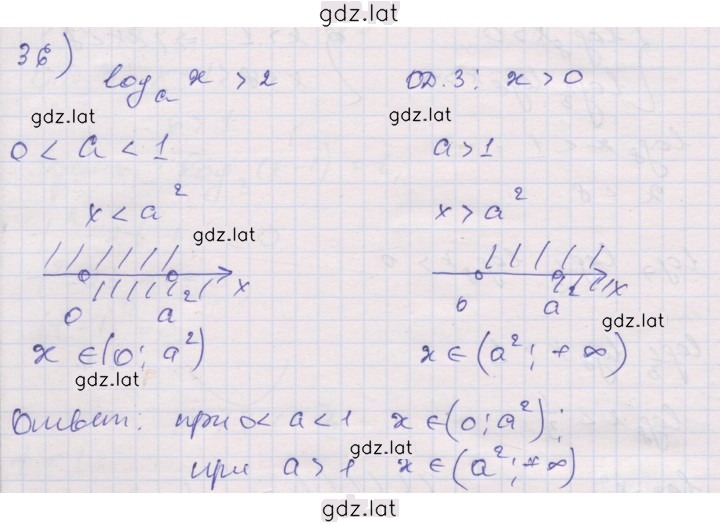 gdz.lat
36)
logₐ x > 2 ОДЗ: x > 0
gdz.lat gdz.lat
0 < a < 1 a > 1
x < a² x > a²
gdz.lat
0 a² x 0 a² x
gdz.lat
x ∈ (0; a²) x ∈ (a²; +∞)
gdz.lat
Ответ: при 0 < a < 1 x ∈ (0; a²);
gdz.lat
при a > 1 x ∈ (a²; +∞)
gdz.lat